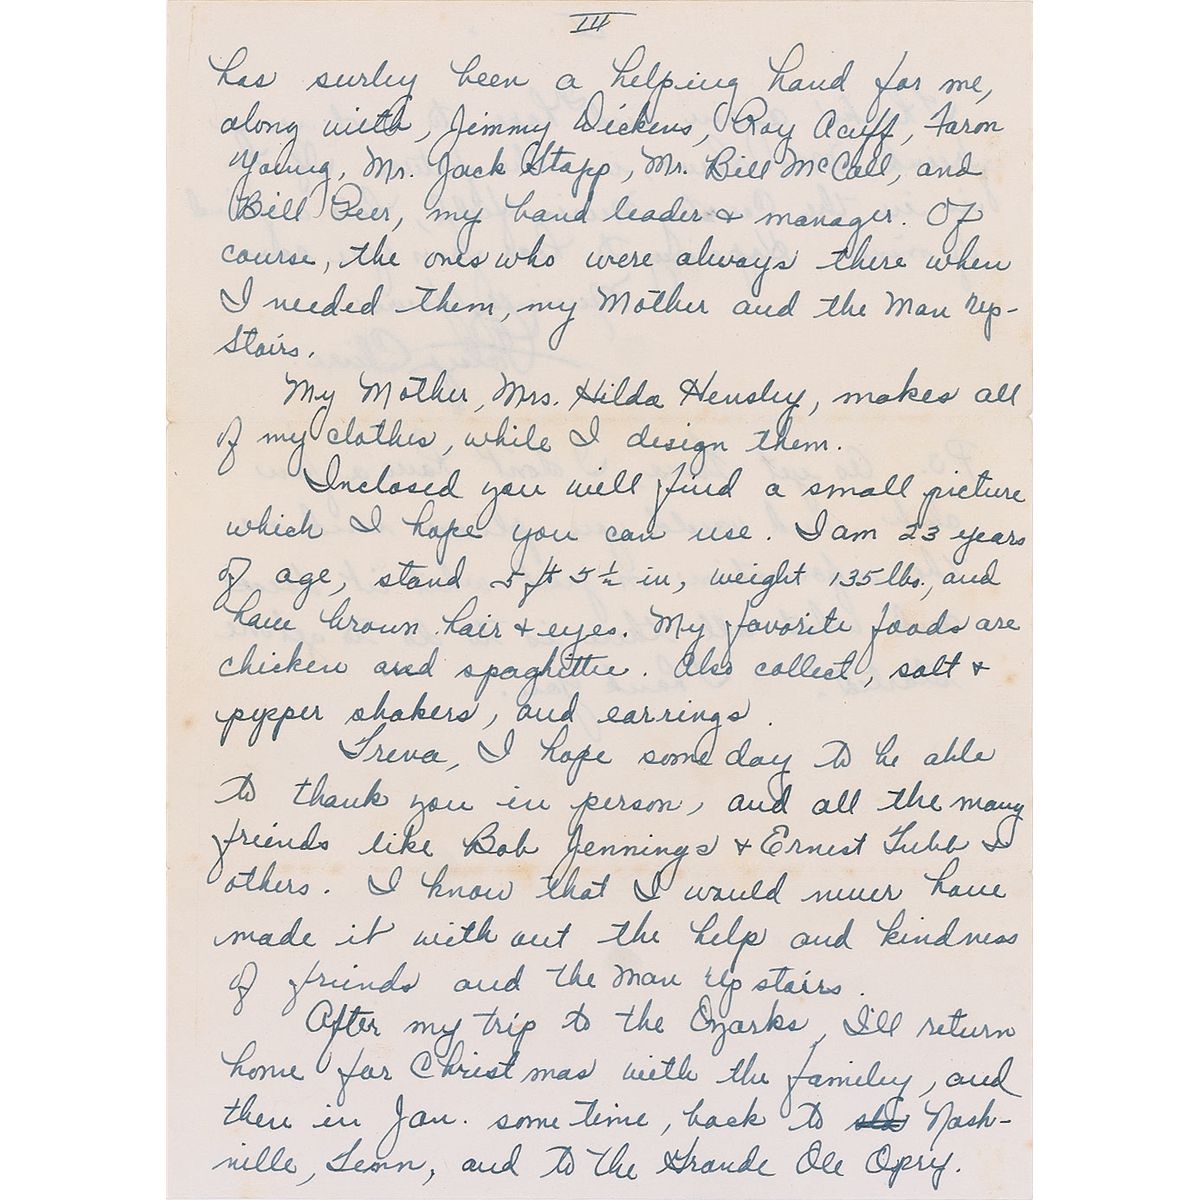 III
has surley been a helping hand for me,
along with, Jimmy Dickens, Roy Acuff, Faron
Young, Mr. Jack Stapp, Mr. Bill McCall, and
Bill Peer, my band leader & manager. Of
course, the ones who were always there when
I needed them, my Mother and the Man Up-
stairs.
My Mother, Mrs. Hilda Hensley, makes all
of my clothes, while I design them.
Inclosed you will find a small picture
which I hope you can use. I am 23 years
of age, stand 5 ft 5½ in, weight 135 lbs. and
have brown hair & eyes. My favorite foods are
chicken and spaghittie. Also collect, salt &
pepper shakers, and earrings.
Treva, I hope some day to be able
to thank you in person, and all the many
friends like Bob Jennings & Ernest Tubb &
others. I know that I would never have
made it with out the help and kindness
of friends and the Man Up stairs.
After my trip to the Ozarks, I'll return
home for Christmas with the familey, and
then in Jan. some time, back to Nash-
ville, Tenn, and to the Grande Ole Opry.